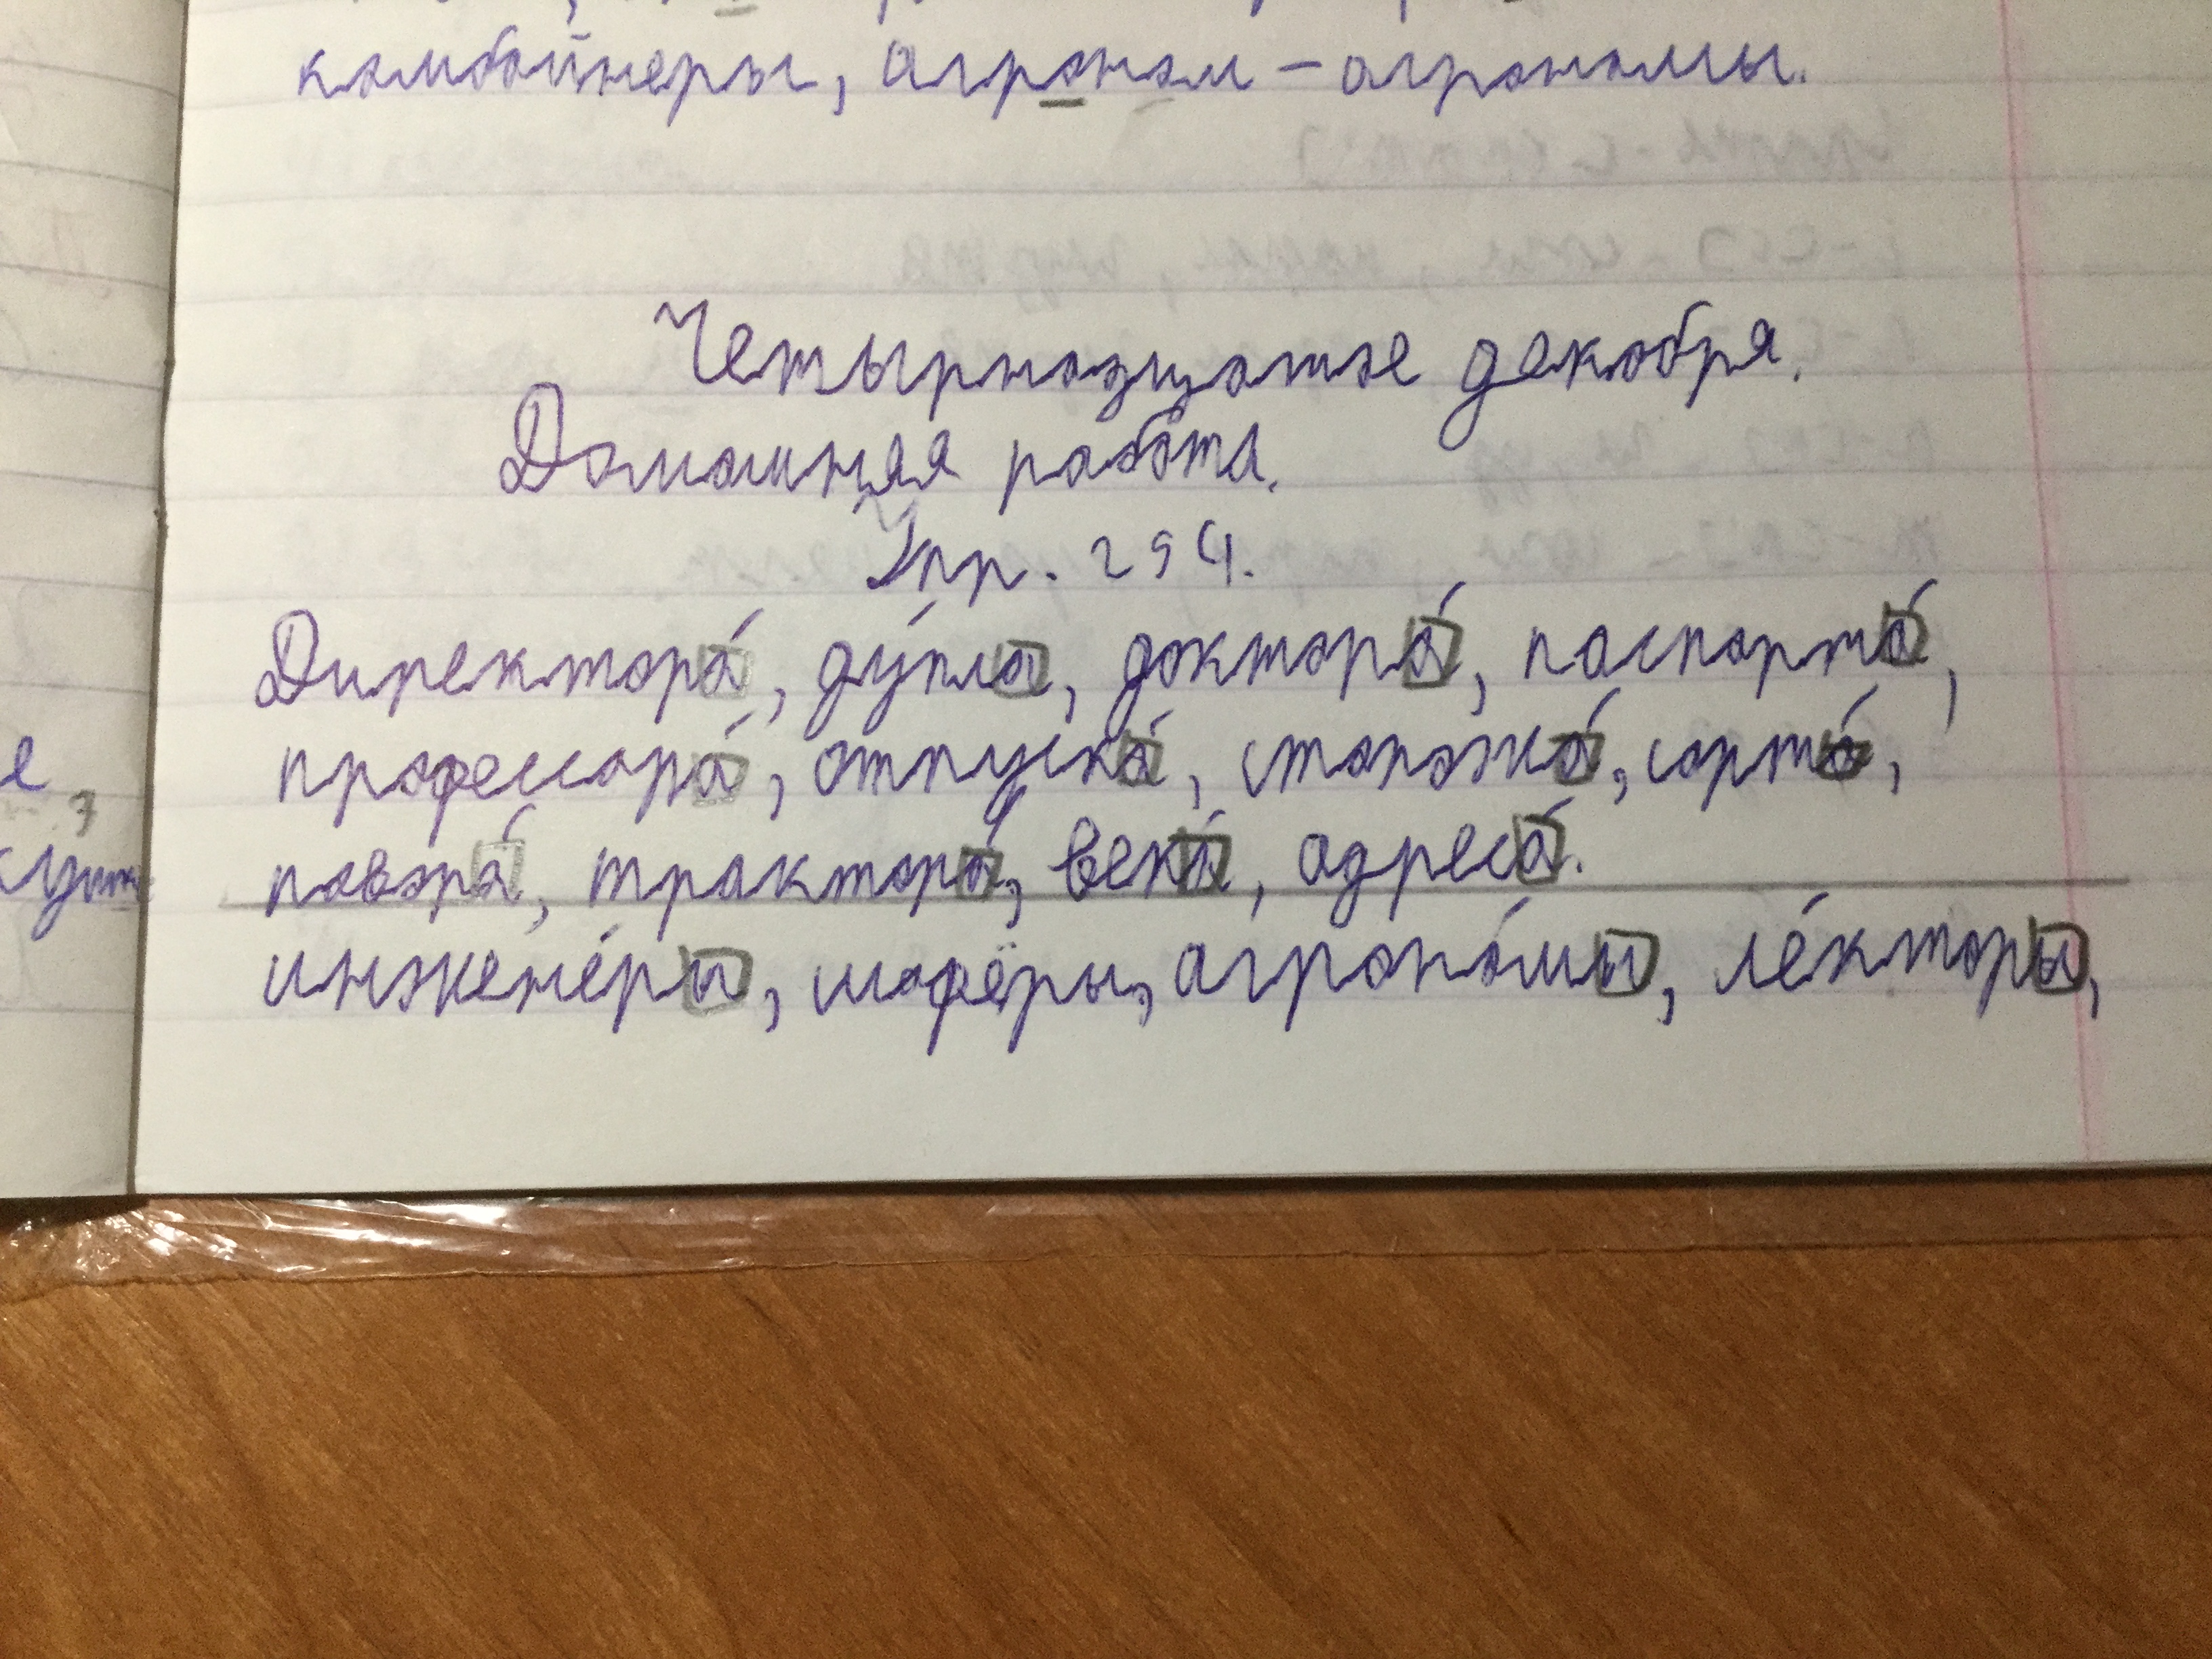 комбойнеры, агроном – агрономы.
Четырнадцатое декабря.
Домашняя работа.
Упр. 294.
Директора́, ду́пла, доктора́, паспорта́,
профессора́, отпуска́, сторожа́, сорта́,
повара́, трактора́, века́, адреса́.
инжене́ры, шофёры, агроно́мы, ле́кторы,